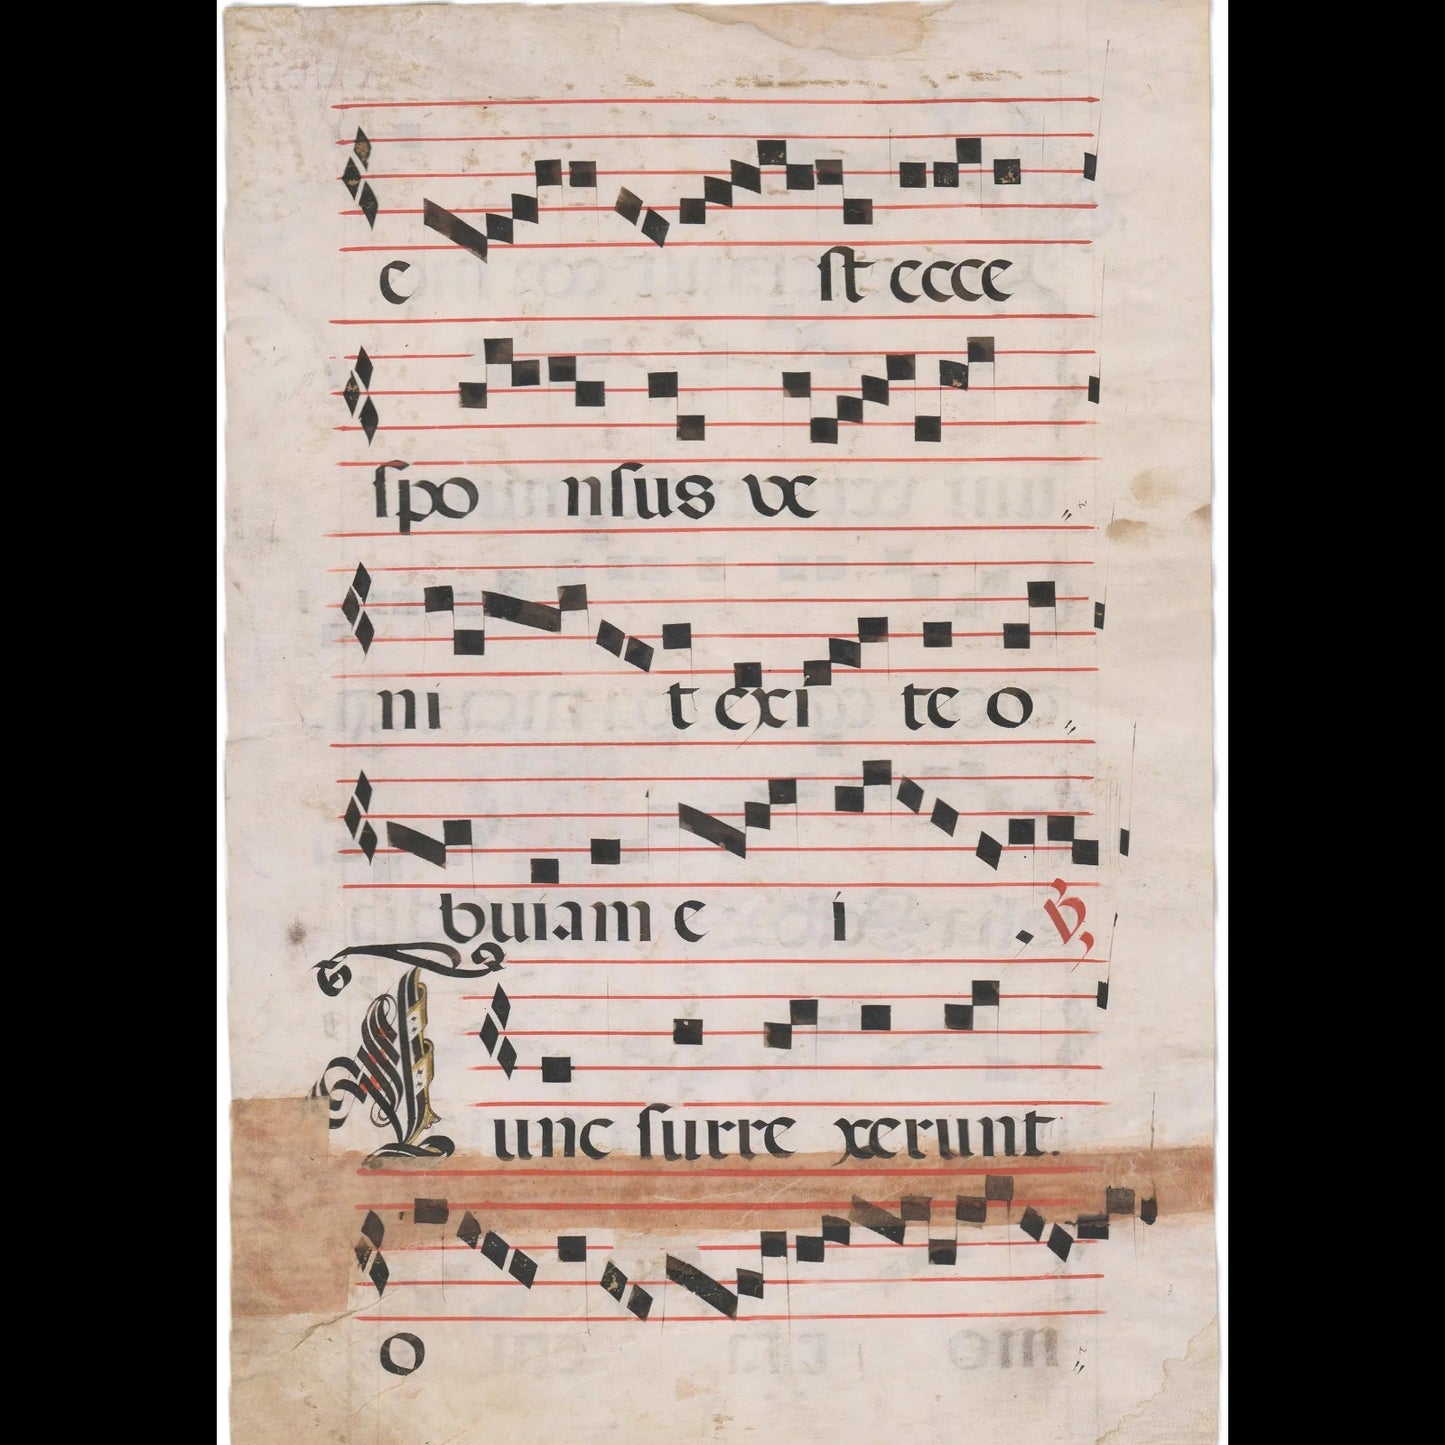 e st ecce
spo nsus ve
ni t exi te o
buiam e i . ℟
Tunc surre xerunt.
o